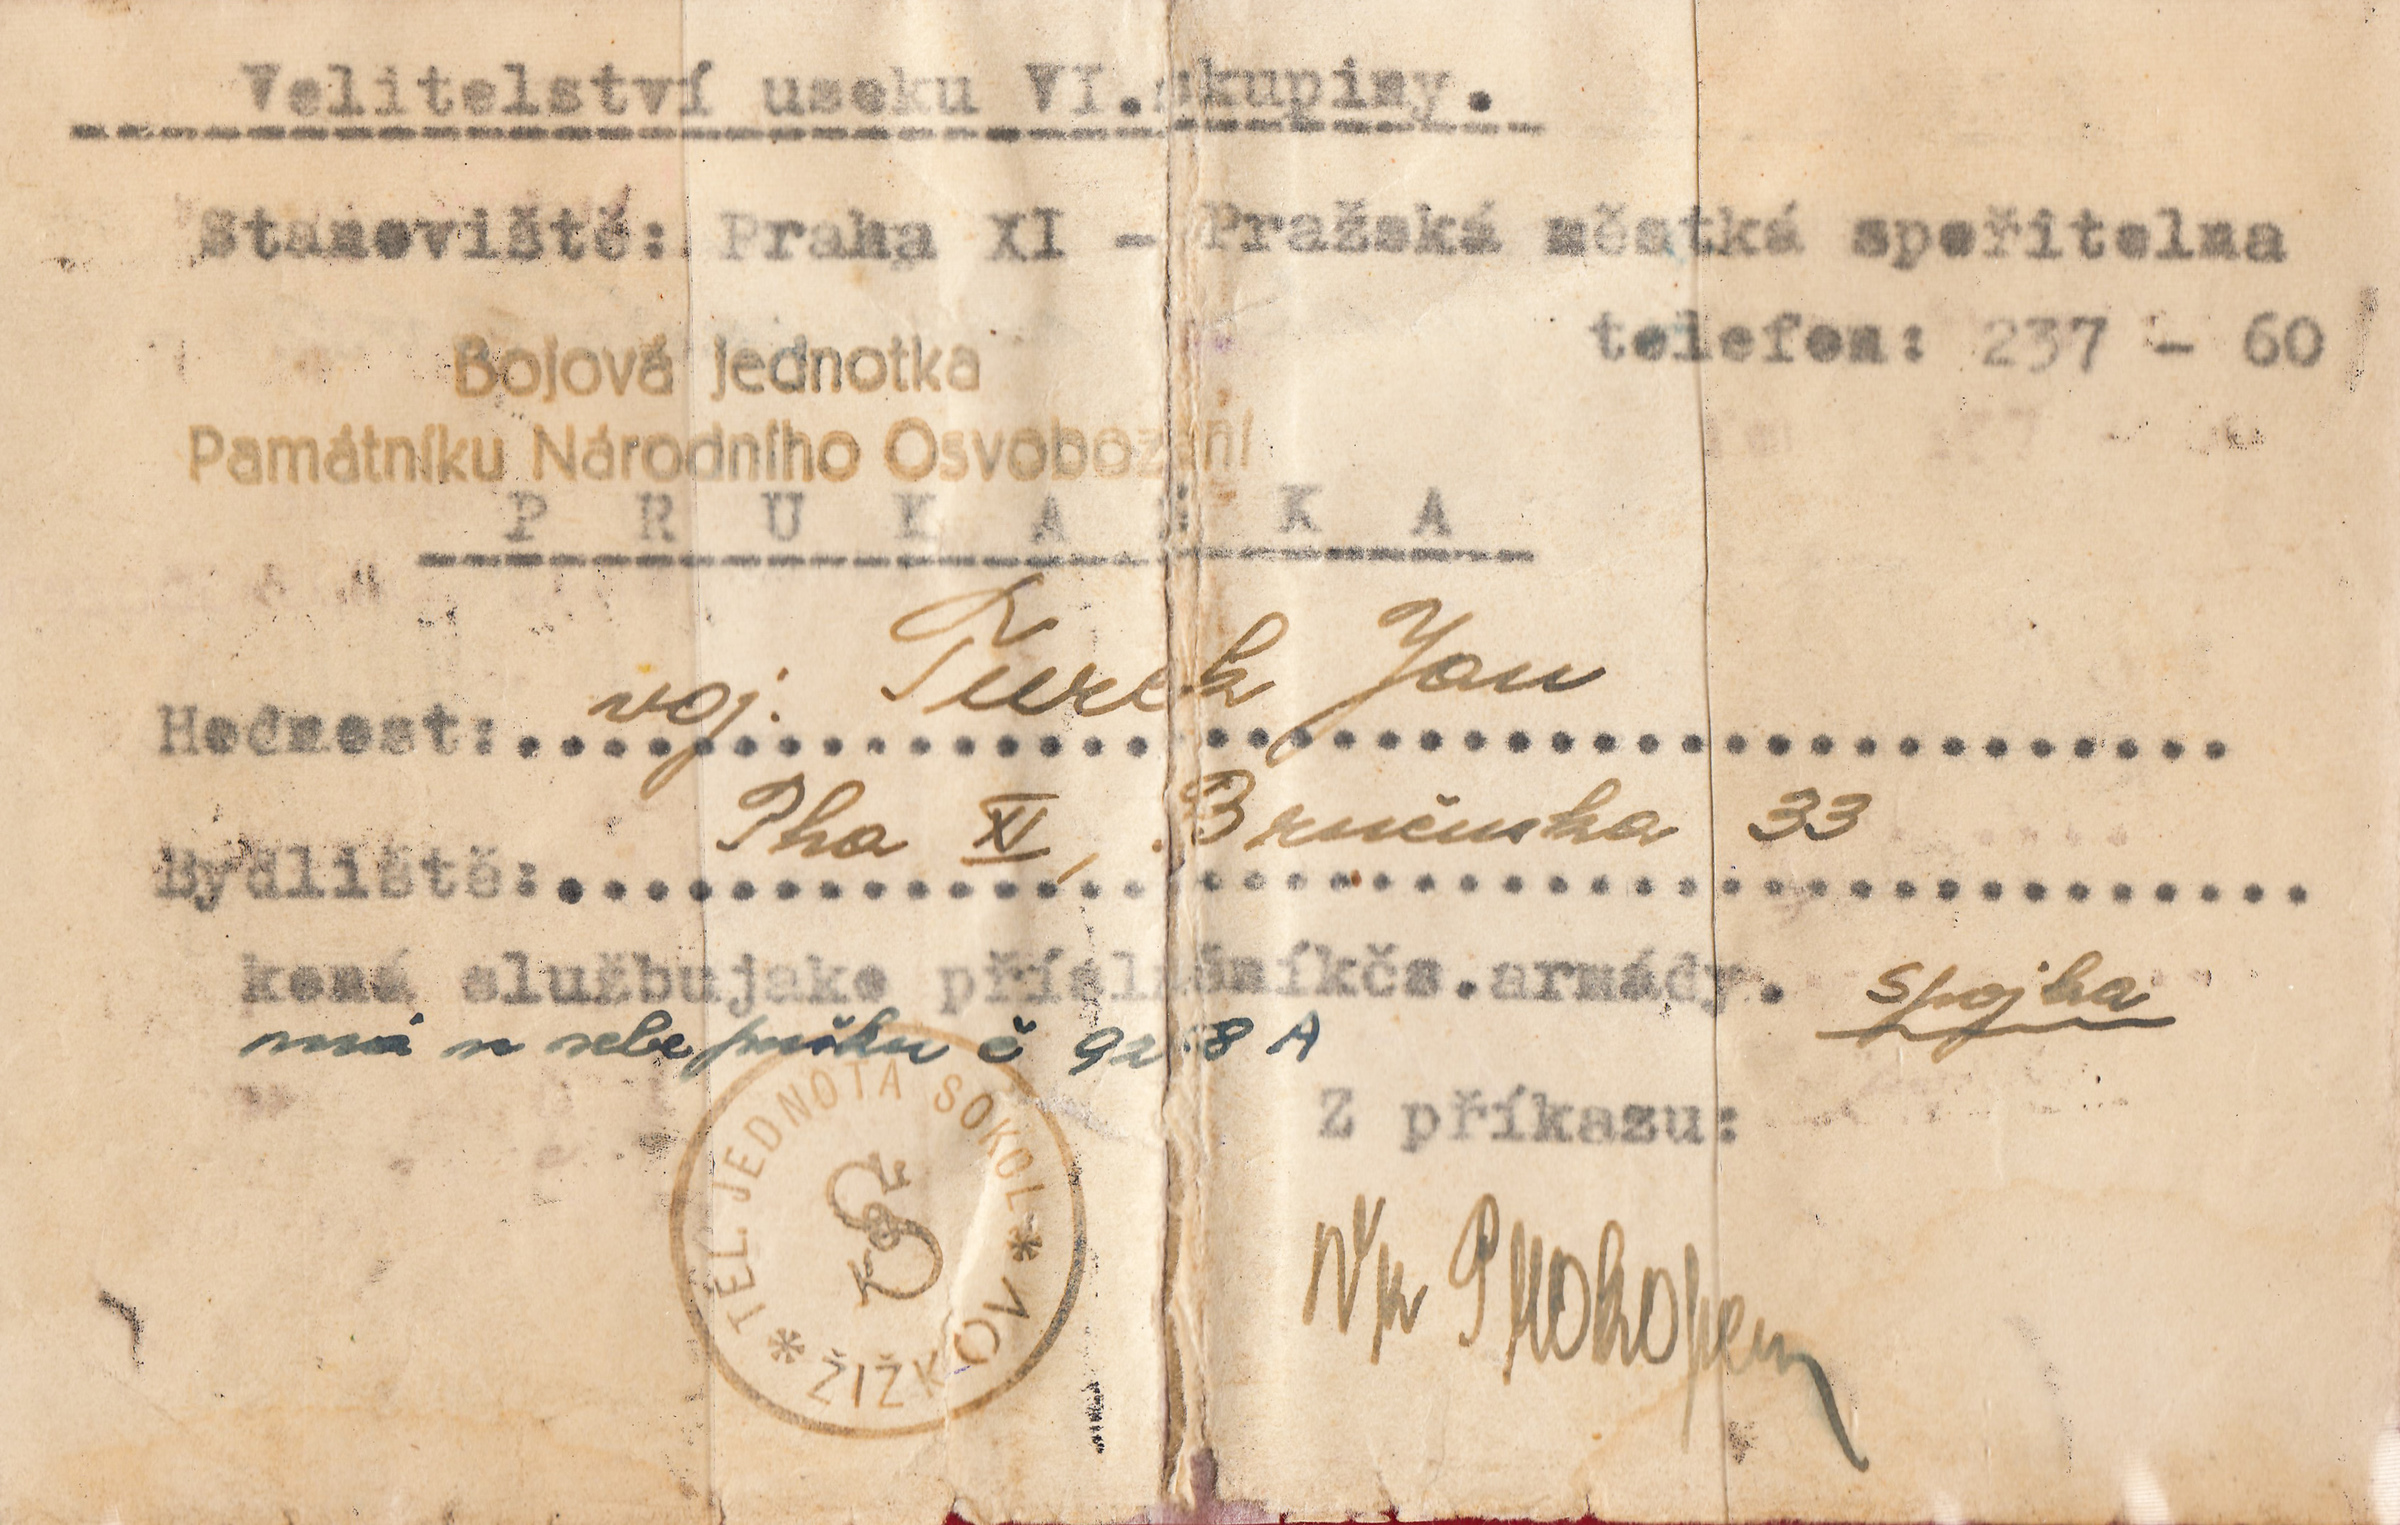 Velitelství useku VI.skupiny.
Stanoviště: Praha XI - Pražská městká spořitelna
telefon: 237 - 60
Bojová jednotka
Památníku Národního Osvobození
P R U K A Z K A
Hodnost: voj. Turek Jan
Bydliště: Pha XI, 33
koná službujako příslušníkčs.armády. spojka
má u sebe pušku č A
TĚL. JEDNOTA SOKOL
ŽIŽKOV
Z příkazu:
Prokopem